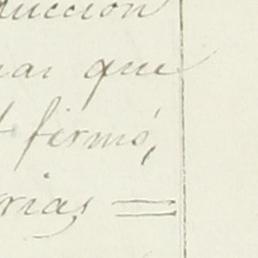 ducción
nar que
firmó,
rias =